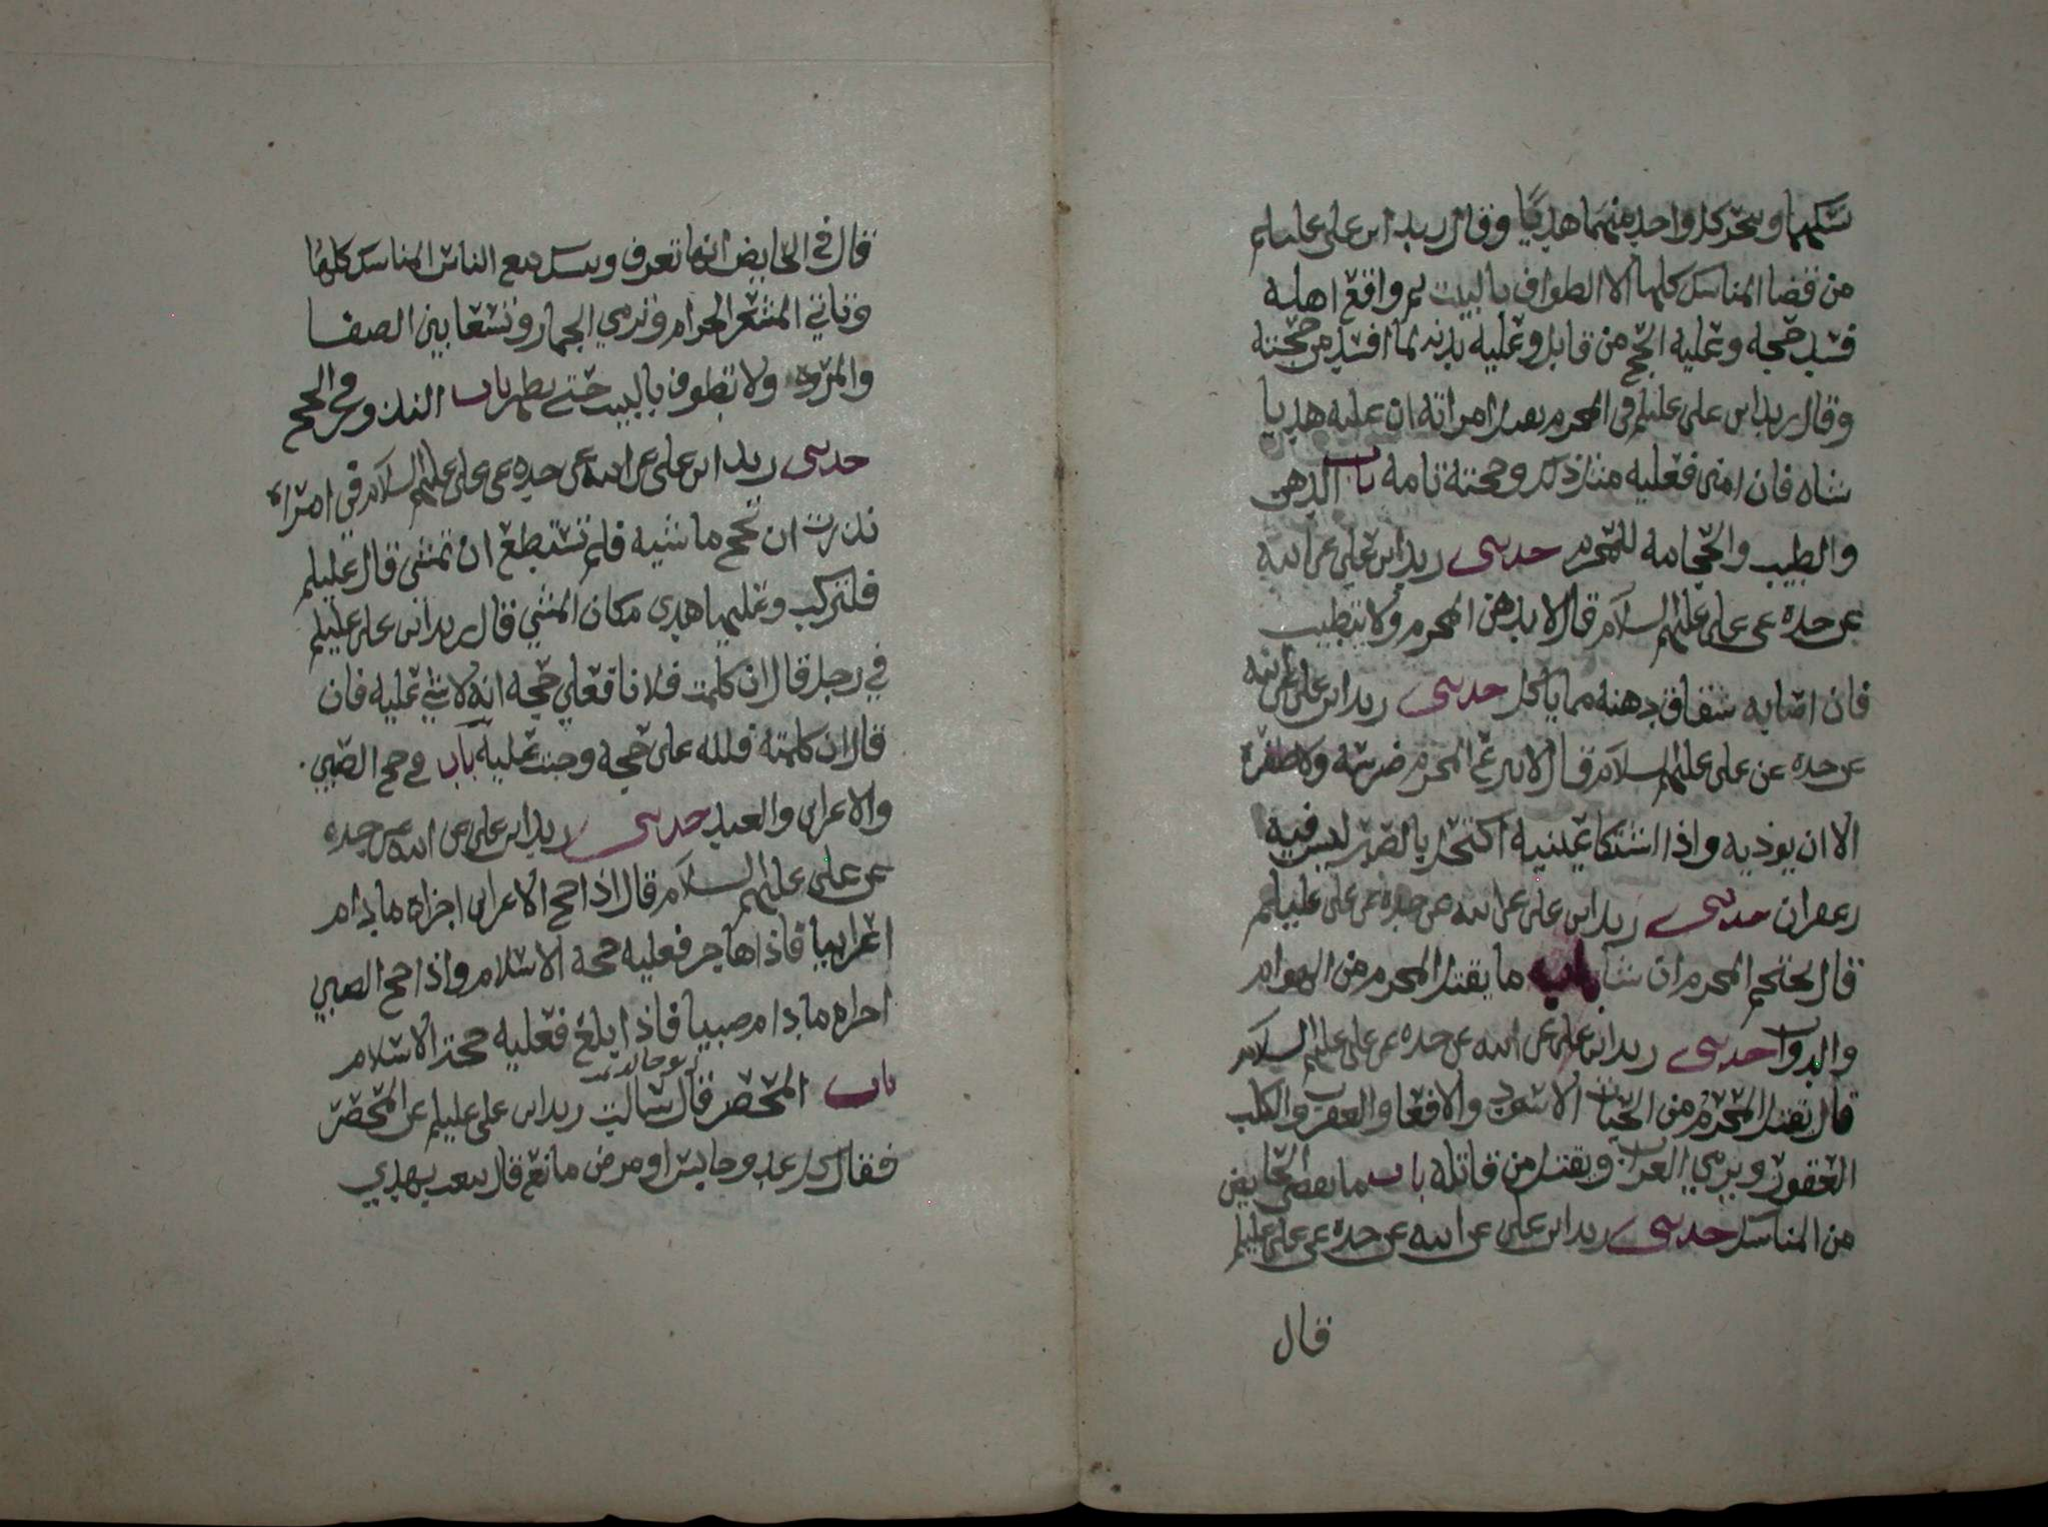 نسكهما وينحر كل واحد منهما هديًا وقال زيد ابن علي عليلم
من قضا المناسك كلها الا الطواف بالبيت ثم واقع اهله
فسد حجه وعليه الحج من قابل وعليه بدنه لما افسد من حجته
وقال زيد ابن علي عليلم في المحرم يقبل امراته ان عليه هديا
شاه فان امنى فعليه مثل ذلك وحجته تامه باب الدهن
والطيب والحجامه للمحرم حدثني زيد ابن علي عن ابيه
عن جده عن علي عليهم السلام قال لا يدهن المحرم ولا يتطيب
فان اصابه شقاق دهنه مما ياكل حدثني زيد ابن علي عن ابيه
عن جده عن علي عليهم السلام قال لا ينزع المحرم ضرسه ولا ظفره
الا ان يوذيه واذا اشتكا عينيه اكتحل بالصبر ليس فيه
زعفران حدثني زيد ابن علي عن ابيه عن جده عن علي عليلم
قال يحتجم المحرم ان شا باب ما يقتل المحرم من الهوام
والدواب حدثني زيد ابن علي عن ابيه عن جده عن علي عليهم السلام
قال يقتل المحرم من الحيات الاسود والافعا والعقرب والكلب
العقور ويرمي الغراب ويقتل من قاتله باب ما يقضي الحايض
من المناسك حدثني زيد ابن علي عن ابيه عن جده عن علي عليلم
قال
قال في الحايض انها تعرف وتنسك مع الناس المناسك كلها
وتاتي المشعر الحرام وترمي الجمار وتسعا بين الصفا
والمروه ولا تطوف بالبيت حتى تطهر باب النذور في الحج
حدثني زيد ابن علي عن ابيه عن جده عن علي عليهم السلام في امراه
نذرت ان تحج ماشيه فلم تستطع ان تمشي قال عليلم
فلتركب وعليها هدي مكان المشي قال زيد ابن علي عليلم
في رجل قال ان كلمت فلانا فعلي حجه انه لا شي عليه فان
قال ان كلمته فلله علي حجه وجبت عليه باب في حج الصبي
والاعرابي والعبد حدثني زيد ابن علي عن ابيه عن جده
عن علي عليهم السلام قال اذا حج الاعرابي اجزاه ما دام
اعرابيا فاذا هاجر فعليه حجة الاسلام واذا حج الصبي
اجزاه ما دام صبيا فاذا بلغ فعليه حجة الاسلام
باب المحصر قال ابو خالد سالت زيد ابن علي عليلم عن المحصر
فقال من عدو حابس او مرض مانع قال يبعث بهدي